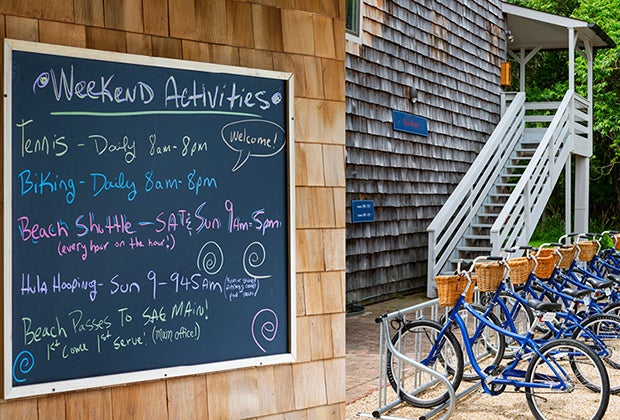 Weekend Activities
Tennis - Daily 8am-8pm
Welcome!
Biking - Daily 8am-8pm
Beach Shuttle - SAT & Sun 9am-5pm
(every hour on the hour!)
Hula Hooping - Sun 9-945am
Beach Passes To SAG MAIN!
1st come 1st serve! (Main office!)